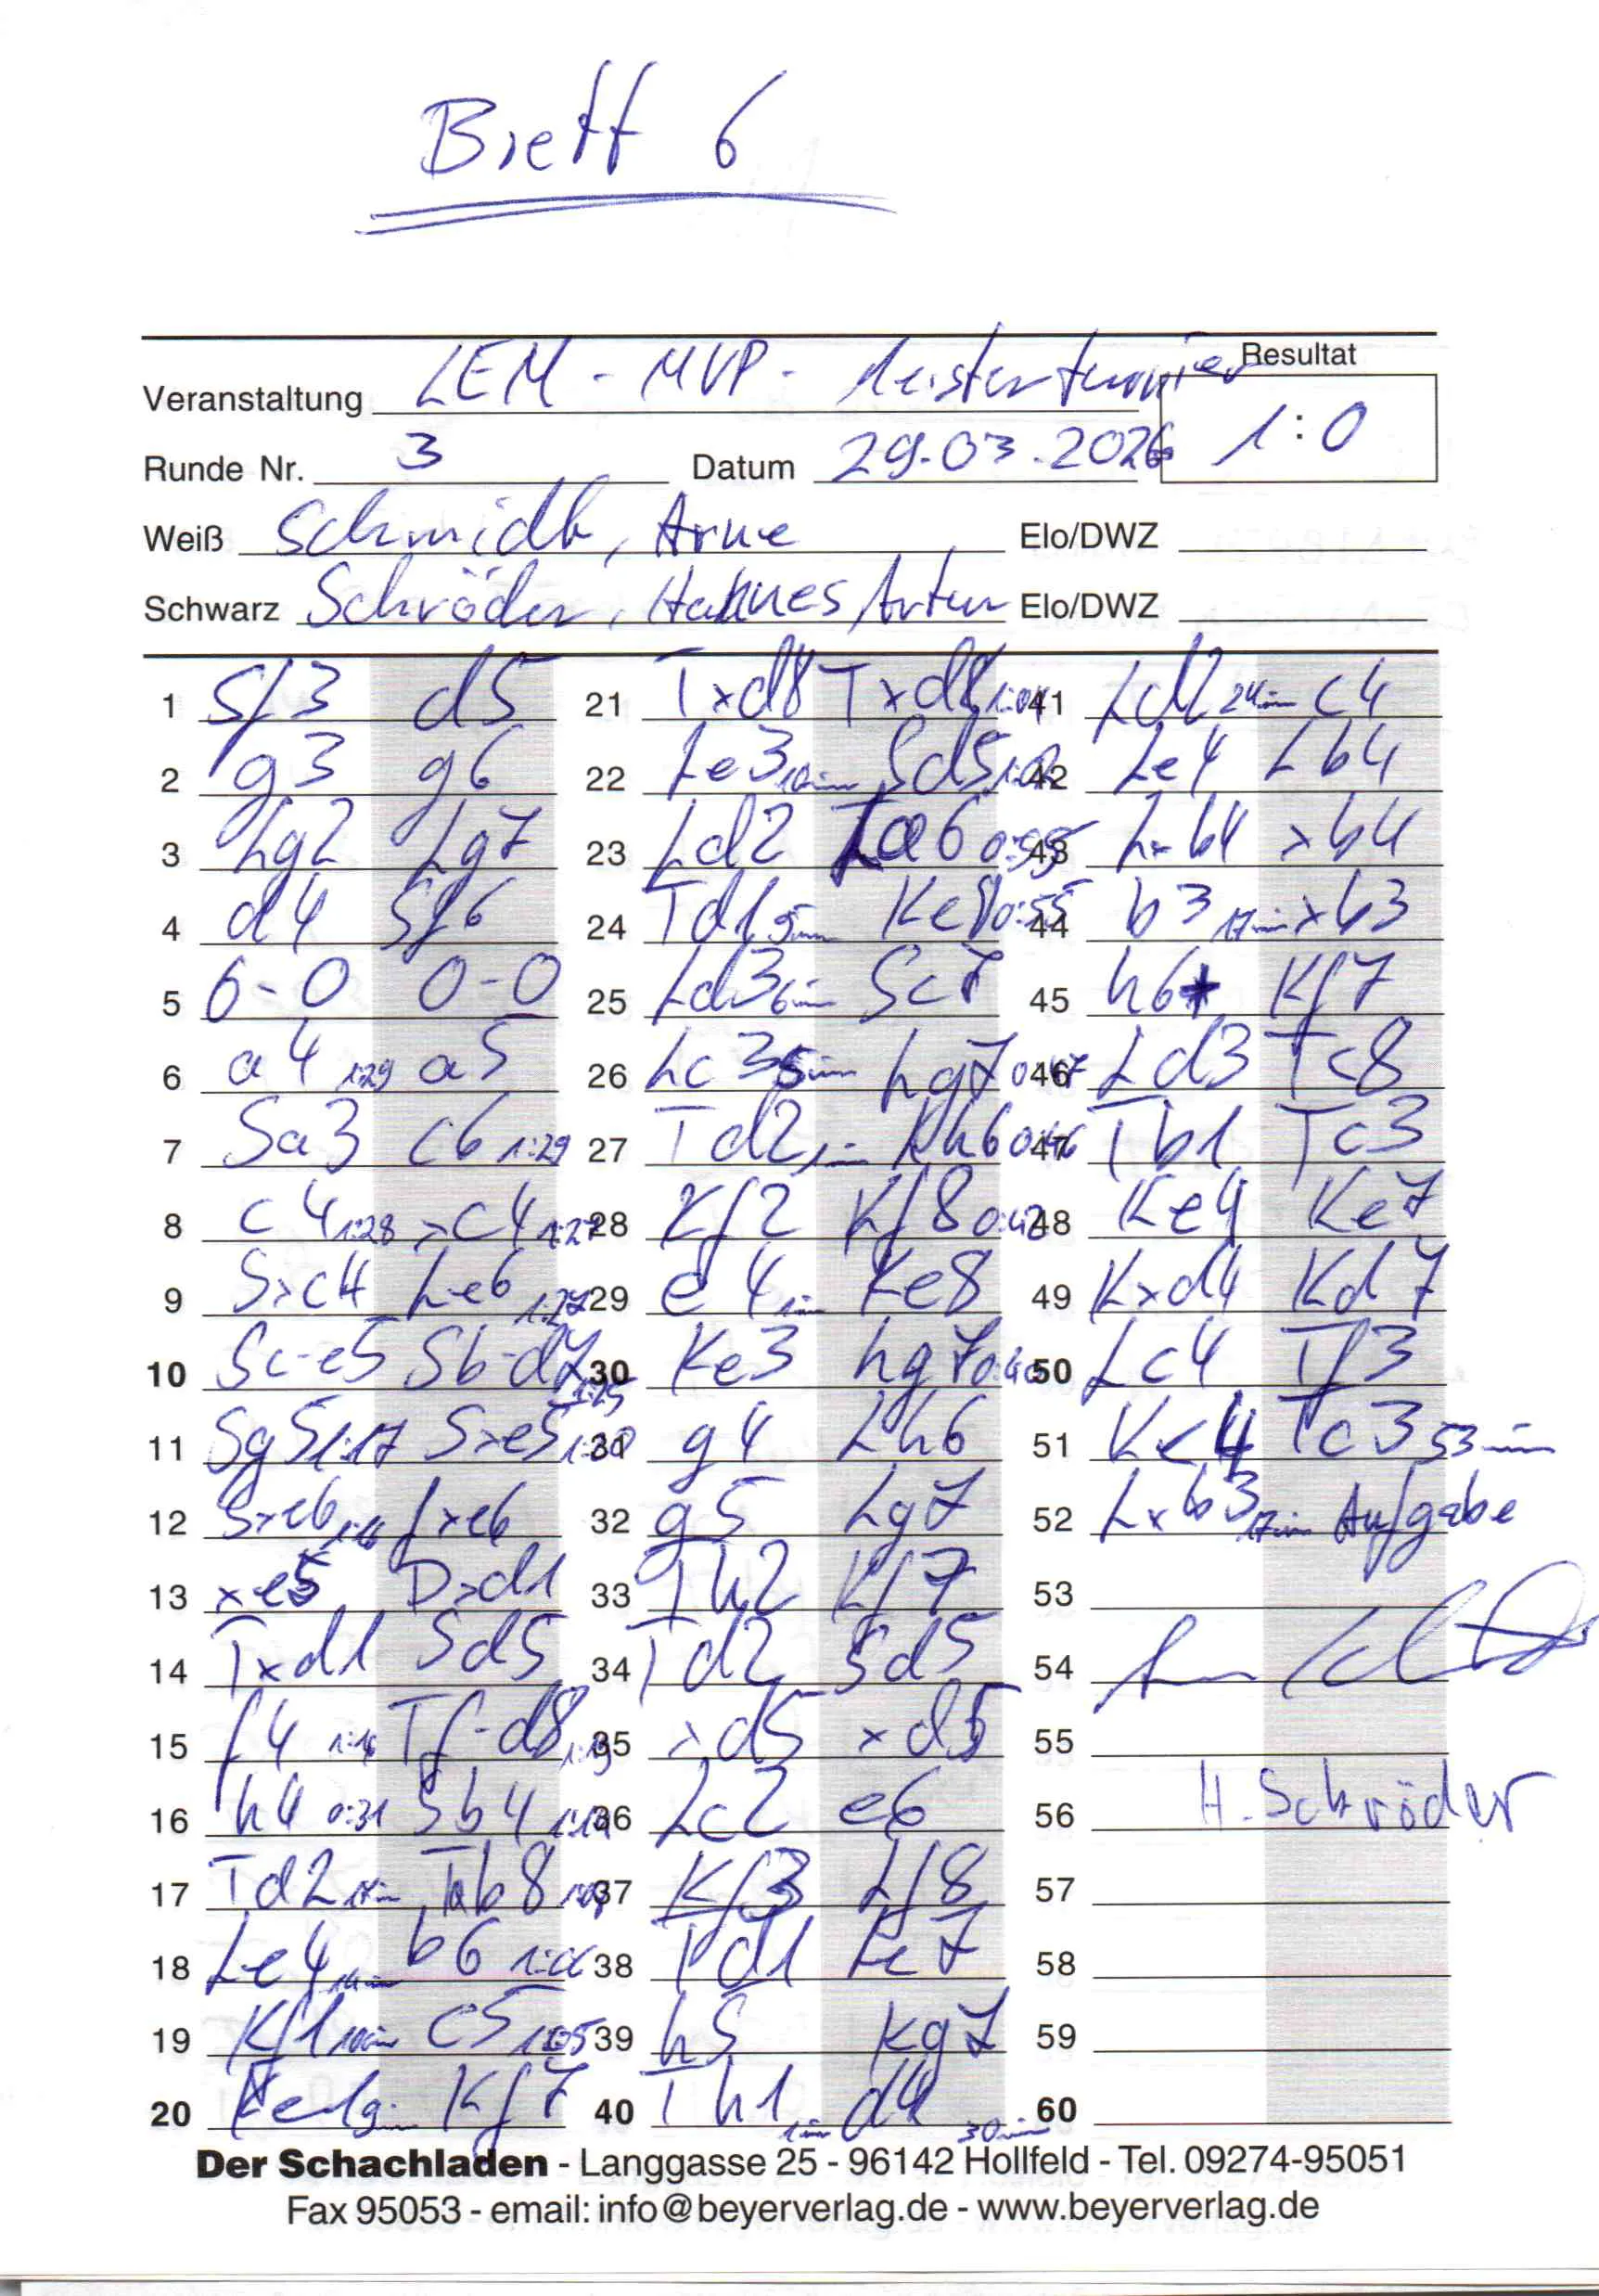 Brett 6
Resultat
Veranstaltung LEM - MVP - Meisterturnier
1:0
Runde Nr. 3 Datum 29.03.2026
Weiß Schmidt, Arne Elo/DWZ
Schwarz Schröder, Hannes Artur Elo/DWZ
1 Sf3 d5
2 g3 g6
3 Lg2 Lg7
4 d4 Sf6
5 0-0 0-0
6 a4 1:29 a5
7 Sa3 c6 1:29
8 c4 1:28 xc4 1:27
9 Sxc4 Le6 1:27
10 Sc-e5 Sb-d7 1:25
11 Sg5 1:17 Sxe5
12 Sxe6 1:16 fxe6
13 xe5 Dxd1
14 Txd1 Sd5
15 f4 1:16 Tf-d8
16 h4 0:31 Sb4
17 Td2 Tab8
18 Le4 b6 1:06
19 Kf1 10min c5 1:05
20 Ke1 9min Kf7
21 Txd8 Txd8 1:04
22 Le3 10min Sd5 1:02
23 Ld2 La6 0:55
24 Td1 9min Ke8 0:55
25 Ld3 6min Sc7
26 Lc3 5min Lg7 0:47
27 Td2 1min Lh6 0:46
28 Kf2 Kf8 0:42
29 e4 1min Ke8
30 Ke3 Lg7 0:40
31 g4 Lh6
32 g5 Lg7
33 Th2 Kf7
34 Td2 Sd5
35 xd5 xd5
36 Lc2 e6
37 Kf3 Lf8
38 Td1 Le7
39 h5 Kg7
40 Th1 1min d4 30min
41 Ld2 24min c4
42 Le4 Lb4
43 Lxb4 xb4
44 b3 17min xb3
45 h6+ Kf7
46 Ld3 Tc8
47 Tb1 Tc3
48 Ke4 Ke7
49 Kxd4 Kd7
50 Lc4 Tf3
51 Ke4 Tc3 53min
52 Lxb3 17min Aufgabe
53
54
55
56 H. Schröder
57
58
59
60
Der Schachladen - Langgasse 25 - 96142 Hollfeld - Tel. 09274-95051
Fax 95053 - email: info@beyerverlag.de - www.beyerverlag.de